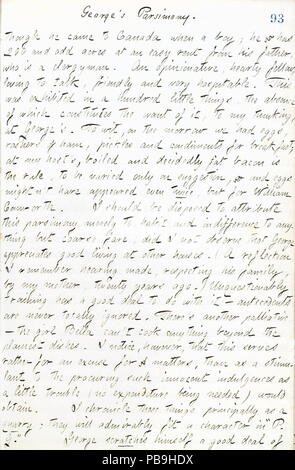 George's Parsimony.
93
though he came to Canada when a boy; he has
200 and odd acres at an easy rent from his father,
who is a clergyman. An opinionative, hearty fellow,
living to talk, friendly and very hospitable. This
was exhibited in a hundred little things, the absence
of which constitutes the want of it, to my thinking,
at George's. To wit, on the morrow we had eggs,
rashers of ham, pickles and condiments for breakfast;
at my host's, boiled and decidedly fat bacon is
the rule, to be varied only on suggestion, and eggs
mightn't have appeared even then, but for William
Conworth. I should be disposed to attribute
this parsimony merely to habit and indifference to any
thing but coarse fare, did I not observe that George
appreciates good living at other houses. (A reflection
I remember hearing made, respecting his family,
by my mother, twenty years ago.) Unquestionably
training has a good deal to do with it — antecedents
are never totally ignored. There's another palliative
— he and Bella can't cook anything beyond the
plainest dishes. I notice, however, that this serves
rather for an excuse for matters, than as a stimu-
lant to the procuring such innocent indulgences as
a little trouble (no expenditure being needed) would
obtain. I chronicle these things principally as a
quarry; they will admirably fit a character in
George scratches himself a good deal of